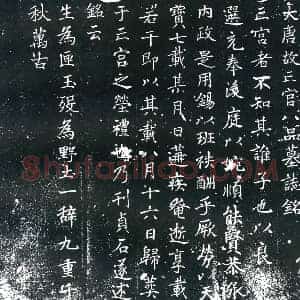 大唐故三宮八品墓誌銘
亡三宮者不知其誰子也以良
選充奉後庭以
內政是用錫以班秩酬乎厥勞以天
寶七載其月日遘疾奄逝享載
若干即以其載八月十六日歸葬
于三宮之塋禮也乃刊貞石遂述
銘云
生為匣玉歿為野土一梓九重
秋萬古